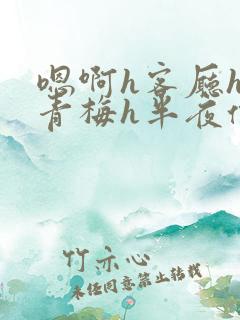 嗯啊h客厅h
青梅h半夜
竹亦心
未经同意禁止转载